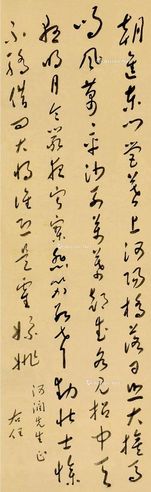 朝進東門營暮上河陽橋落日照大旗馬
鳴風蕭〻平沙列萬幕部伍各見招中天
懸明月令嚴夜寂寥悲笳數聲動壯士慘
不驕借問大將誰恐是霍嫖姚
河潤先生正
右任